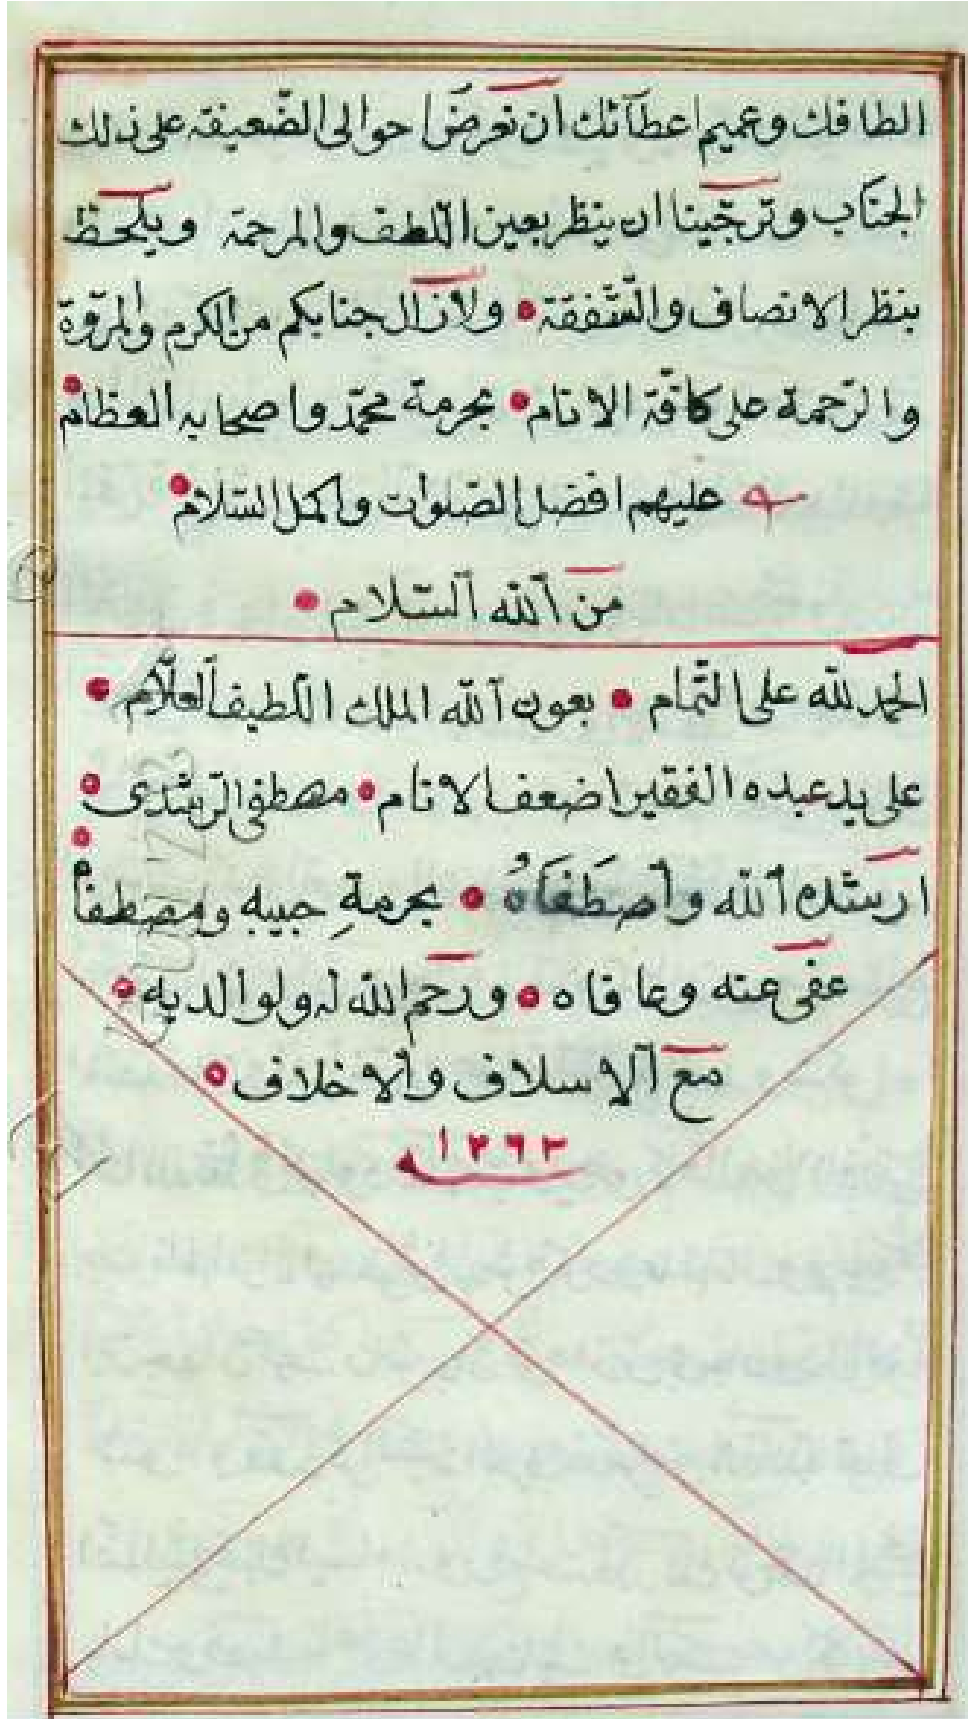 الطافك وعميم اعطآئك ان نعرض احوالى الضّعيفة على ذلك
الجناب وترجّينا ان ينظر بعين اللّطف والمرحمة ويلحظ
بنظر الانصاف والشّفقة • ولازال جنابكم من الكرم والمرّوة
والرّحمة على كافّة الانام • بحرمة محمّد واصحابه العظام •
عليهم افضل الصّلوات واكمل السّلام •
من ٱلله ٱلسّلام •
الحمد لله على التّمام • بعون ٱلله الملك اللّطيف ٱلعلّام •
على يد عبده الفقير اضعف الانام • مصطفى الرّشدى •
ارشده ٱلله وٱصطَفَاهُ • بحرمةِ حبيبه ومصطفاه •
عفى عنه وعافاه • ورحم الله له ولوالديه •
مع ٱلاسلاف وٱلاخلاف •
١٢٦٣